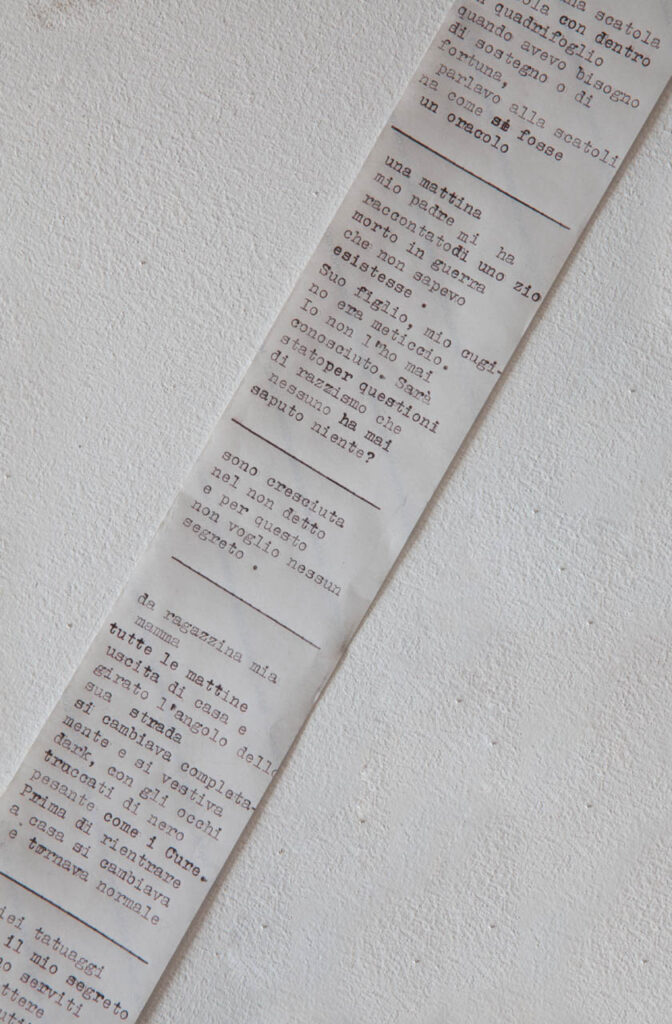 na scatola
ola con dentro
n quadrifoglio
quando avevo bisogno
di sostegno o di
fortuna,
parlavo alla scatoli
na come se fosse
un oracolo
una mattina
mio padre mi ha
raccontatodi uno zio
morto in guerra
che non sapevo
esistesse.
Suo figlio, mio cugi-
no era meticcio.
Io non l'ho mai
conosciuto. Sarà
statoper questioni
di razzismo che
nessuno ha mai
saputo niente?
sono cresciuta
nel non detto
e per questo
non voglio nessun
segreto .
da ragazzina mia
mamma
tutte le mattine
uscita di casa e
girato l'angolo dello
sua strada
si cambiava completa-
mente e si vestiva
dark, con gli occhi
truccati di nero
pesante come i Cure.
Prima di rientrare
a casa si cambiava
e tornava normale
iei tatuaggi
il mio segreto
no serviti
ttere